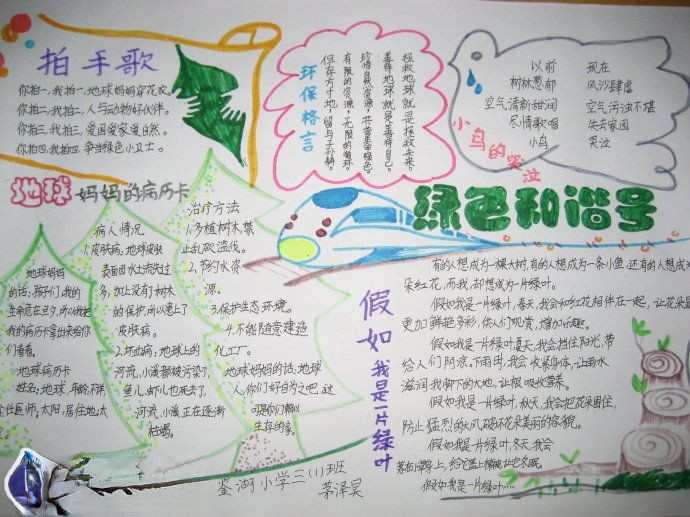 拍手歌
你拍一,我拍一,地球妈妈穿花衣。
你拍二,我拍二,人与动物好伙伴。
你拍三,我拍三,爱国爱家爱自然。
你拍四,我拍四,争当绿色小卫士。
环保格言
拯救地球就是拯救未来。
善待地球就是善待自己。
珍惜自然资源,共营生命绿色。
有限的资源,无限的循环。
但存方寸地,留与子孙耕。
小鸟的哭泣
以前
树林葱郁
空气清新甜润
尽情歌唱
小鸟
现在
风沙肆虐
空气污浊不堪
失去家园
哭泣
绿色和谐号
地球妈妈的病历卡
地球妈妈
的话:孩子们,我的
生命危在旦夕,所以我把
我的病历卡拿出来给你
们看看。
地球病历卡
姓名:地球,年龄:不详
主任医师:太阳,居住地:太
病人情况
1.皮肤病:地球皮肤
表面因水土流失过
多,加上没有了树木
的保护,所以患上了
皮肤病。
2.坏血病:地球上的
河流,小溪都被污染了,
鱼儿,虾儿也死去了,
河流,小溪正在逐渐
枯竭。
治疗方法
1.多植树木,禁
止乱砍滥伐。
2.节约水资
源。
3.保护生态环境。
4.不能随意建造
化工厂。
地球妈妈的话:地球
人,你们好自为之吧,这
可是你们赖以
生存的家。
假如我是一片绿叶
有的人想成为一棵大树,有的人想成为一条小鱼,还有的人想
朵红花,而我,却想成为一片绿叶。
假如我是一片绿叶,春天,我会和红花相伴在一起,让花朵
更加鲜艳多彩,供人们观赏,增加乐趣。
假如我是一片绿叶,夏天,我会挡住阳光,带
给人们阴凉。下雨时,我会收紧身体,让雨水
滋润我脚下的大地,让根吸收营养。
假如我是一片绿叶,秋天,我会把花朵围住,
防止猛烈的大风破坏花朵美丽的容貌。
假如我是一片绿叶,冬天,我会
给它盖上棉被,让它冬眠。
假如我是一片绿叶……
鉴湖小学三(1)班
茅泽昊